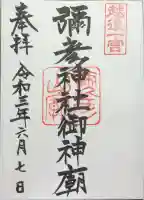 越後一宮
彌彦神社御神廟
奉拝
令和三年六月七日